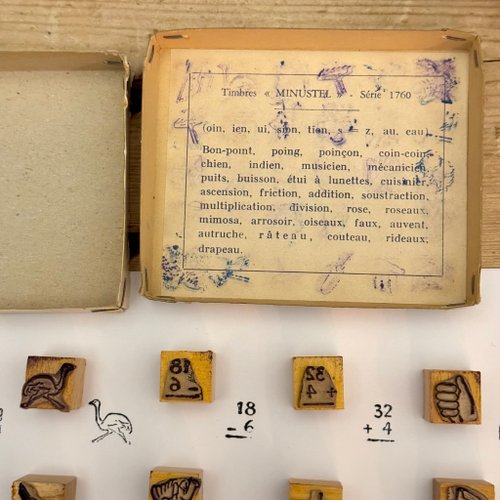 Timbres « MINUSTEL » - Série 1760
(oin, ien, ui, sion, tion, s = z, au, eau)
Bon-point, poing, poinçon, coin-coin,
chien, indien, musicien, mécanicien,
puits, buisson, étui à lunettes, cuisinier,
ascension, friction, addition, soustraction,
multiplication, division, rose, roseaux,
mimosa, arrosoir, oiseaux, faux, auvent,
autruche, râteau, couteau, rideaux,
drapeau.
18
6
32
+ 4
18
- 6
32
+ 4